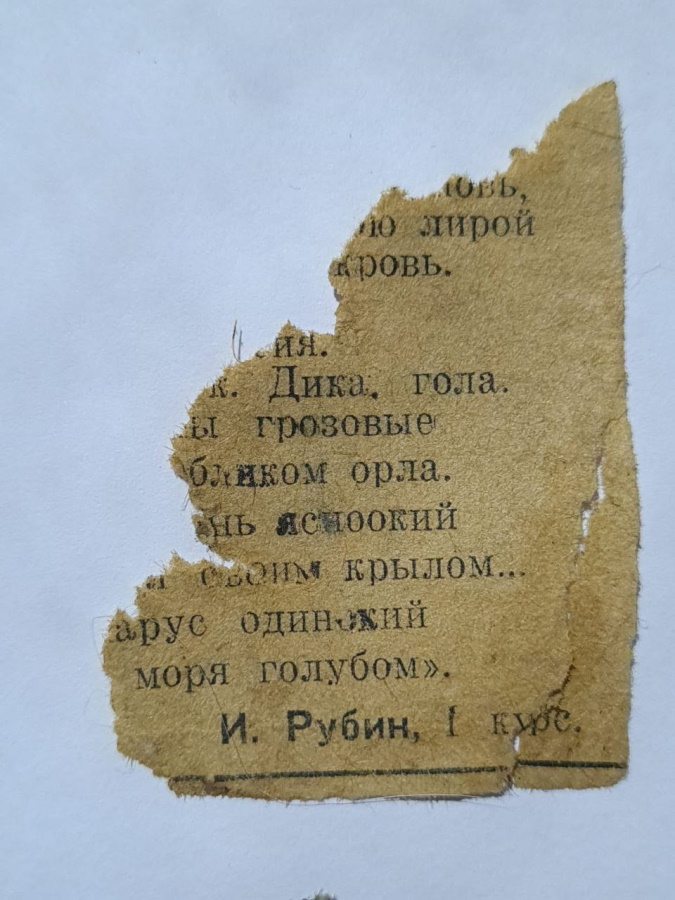 лирой
кровь.
Дика, гола.
грозовые
бликом орла.
ясноокий
своим крылом...
арус одинокий
моря голубом».
И. Рубин, I курс.